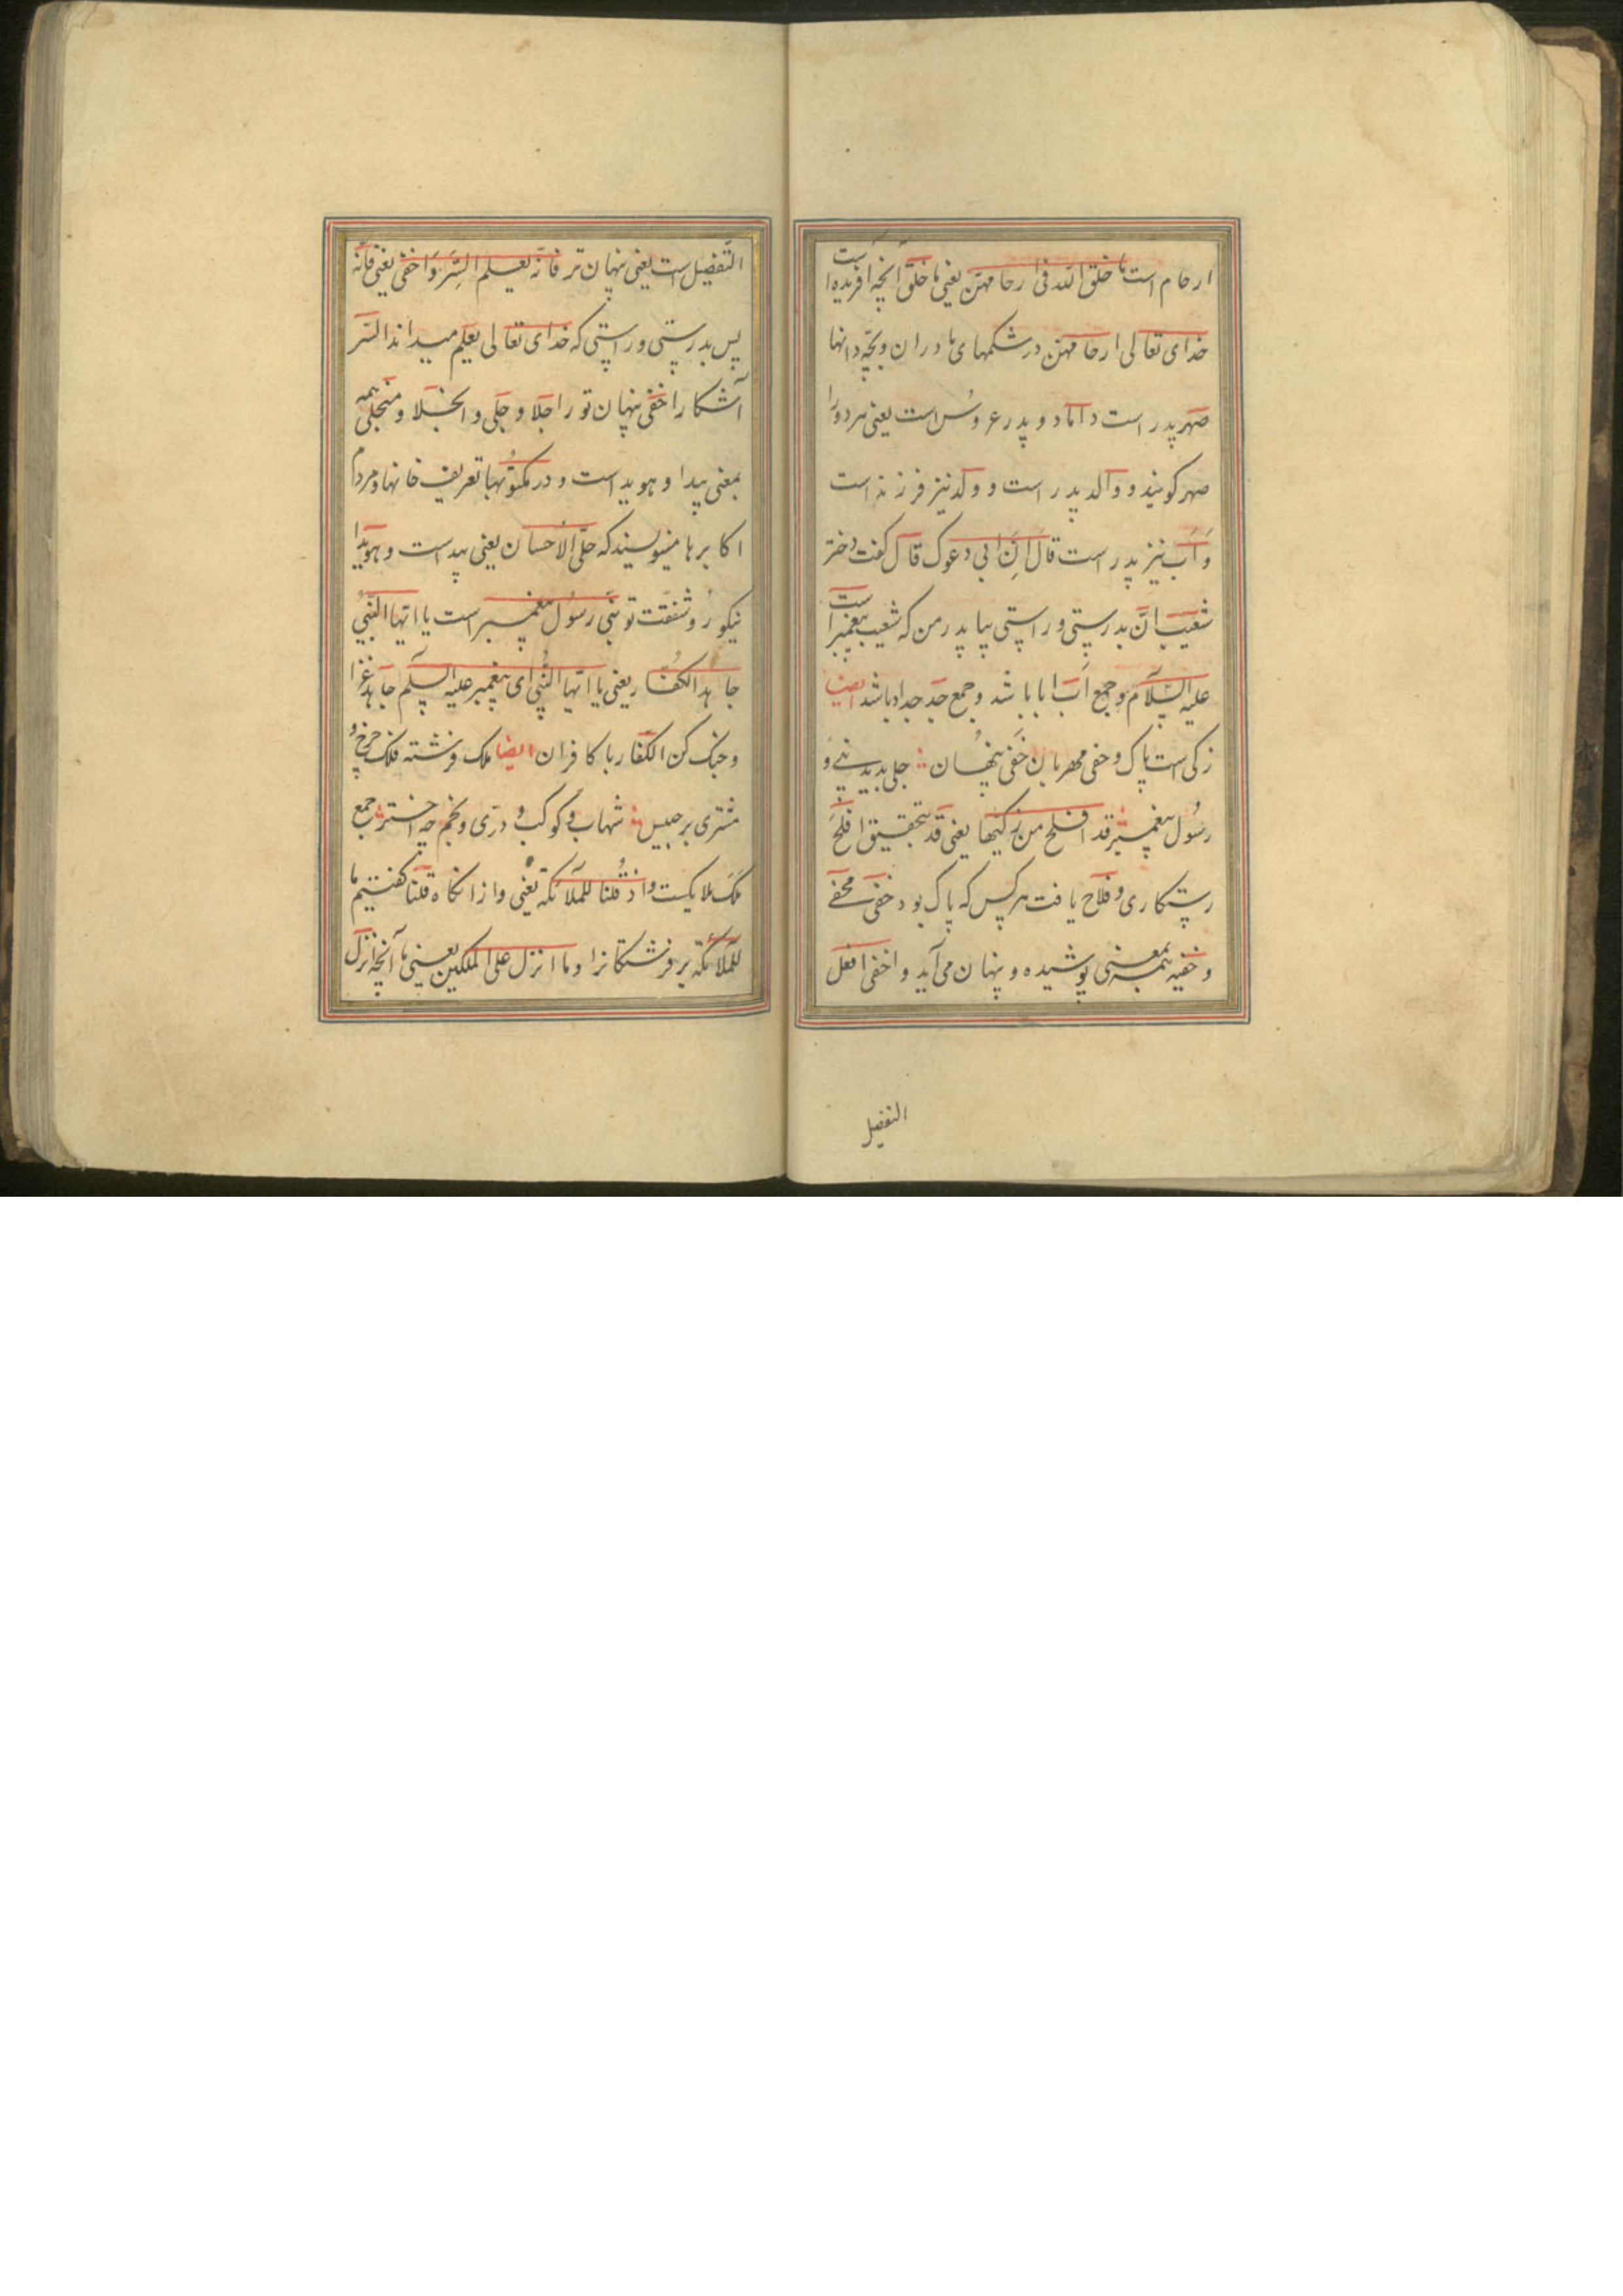 ارحام است ما خلق الله فی ارحامهن یعنی ما خلق آنچه افریده است
خدای تعالی ارحامهن در شکمهای مادران و بچه دانها
صهر پدر است داماد و پدر عروس است یعنی هر دو را
صهر کویند و والد پدر است و ولد نیز فرزند است
و اب نیز پدر است قال ان ابی یدعوک قال کفت دختر
شعیب ان بدرستی و راستی بیا پدر من که شعیب پیغمبر است
علیه السلام و جمع اب ابا باشد و جمع جد جداد باشد ایضا
زکی است پاک و حفی مهربان خفی پنهان جلی پدید نبی و
رسول پیغمبر قد افلح من زکیها یعنی قد بتحقیق افلح
رستکاری و فلاح یافت هر کس که پاک بود خفی مخفی
و خفیه بمعنی پوشیده و پنهان می آید و اخفی افعل
التفضیل
التفضیل است یعنی پنهان تر فانه یعلم السر و اخفی یعنی فانه
پس بدرستی و راستی که خدای تعالی یعلم میداند السر
آشکار اخفی پنهان تو را جلا و جلی و انجلا و منجلی همه
بمعنی پیدا و هوید است و در مکتوبها تعریف خانها و مردم
اکابرها مینویسند که جلی الاحسان یعنی پیداست و هویدا
نیکو رو شفقت تو نبی رسول پیغمبر است یا ایها النبی
جاهد الکفار یعنی یا ایها النبی ای پیغمبر علیه السلم جاهد غزا
و جنک کن الکفار با کافران ایضا ملک فرشته فلک چرخ و
مشتری برجیس شهاب و کوکب و دری و نجم چه اختر جمع
ملک ملایکست و اذ قلنا للملائکة یعنی و از انکاه قلنا کفتیم ما
للملائکة بر فرشتکانرا و ما انزل علی الملکین یعنی ما آنچه انزل